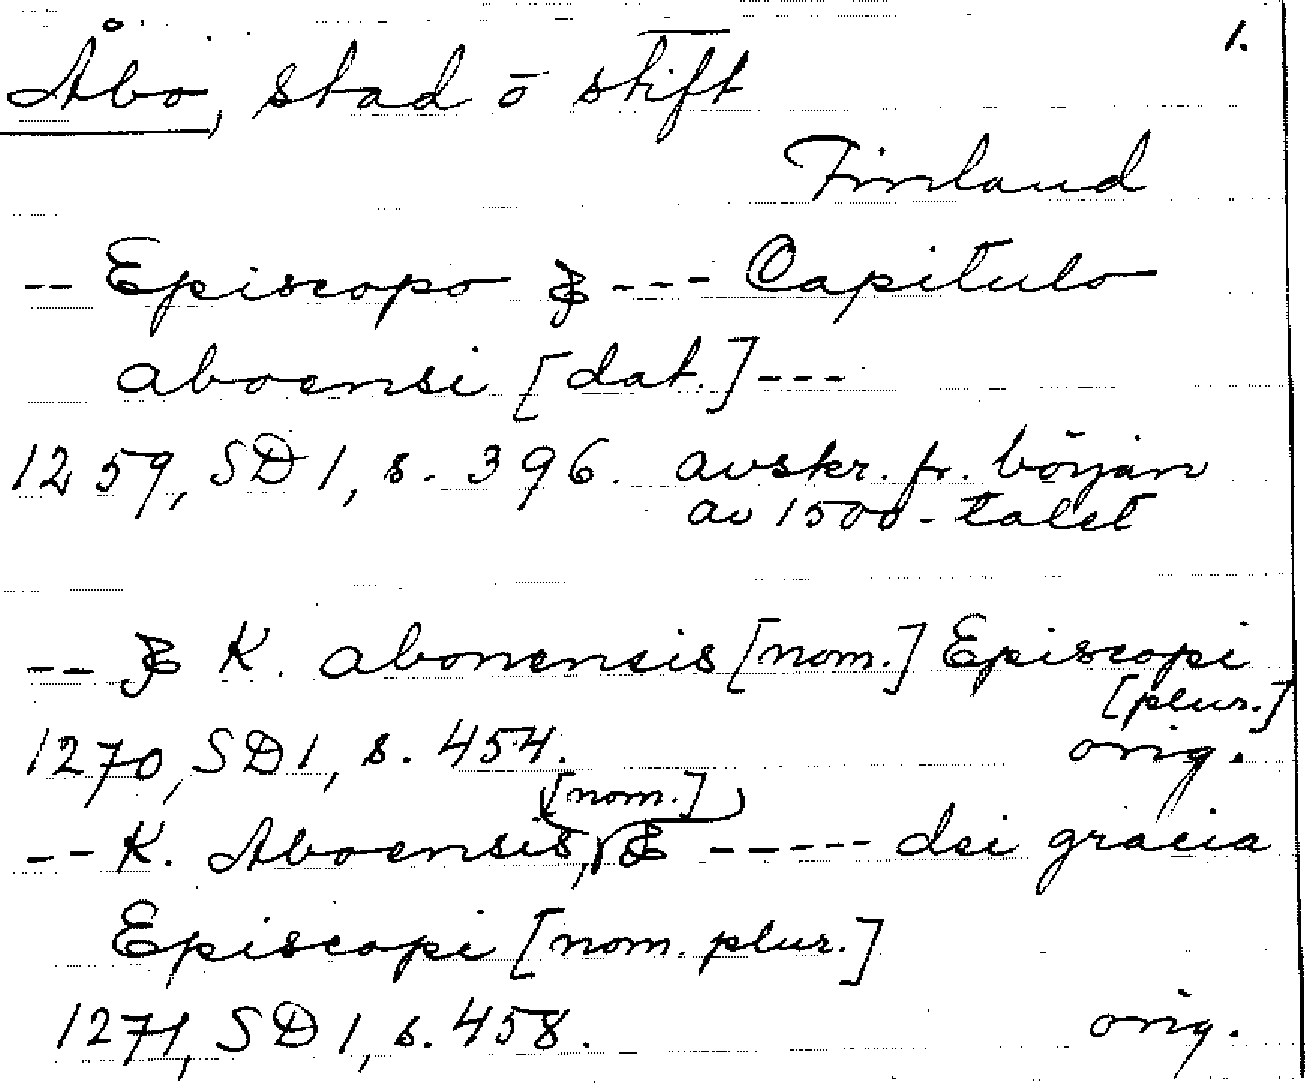 1.
Åbo, stad o stift
Finland
-- Episcopo & --- Capitulo
aboensi [dat.] ---
1259, SD 1, s. 396. avskr. fr. början
av 1500-talet
-- & K. abonensis [nom.] Episcopi
[plur.]
1270, SD 1, s. 454. orig.
[nom.]
-- K. Aboensis, & ----- dei gracia
Episcopi [nom. plur.]
1271, SD 1, s. 458. orig.